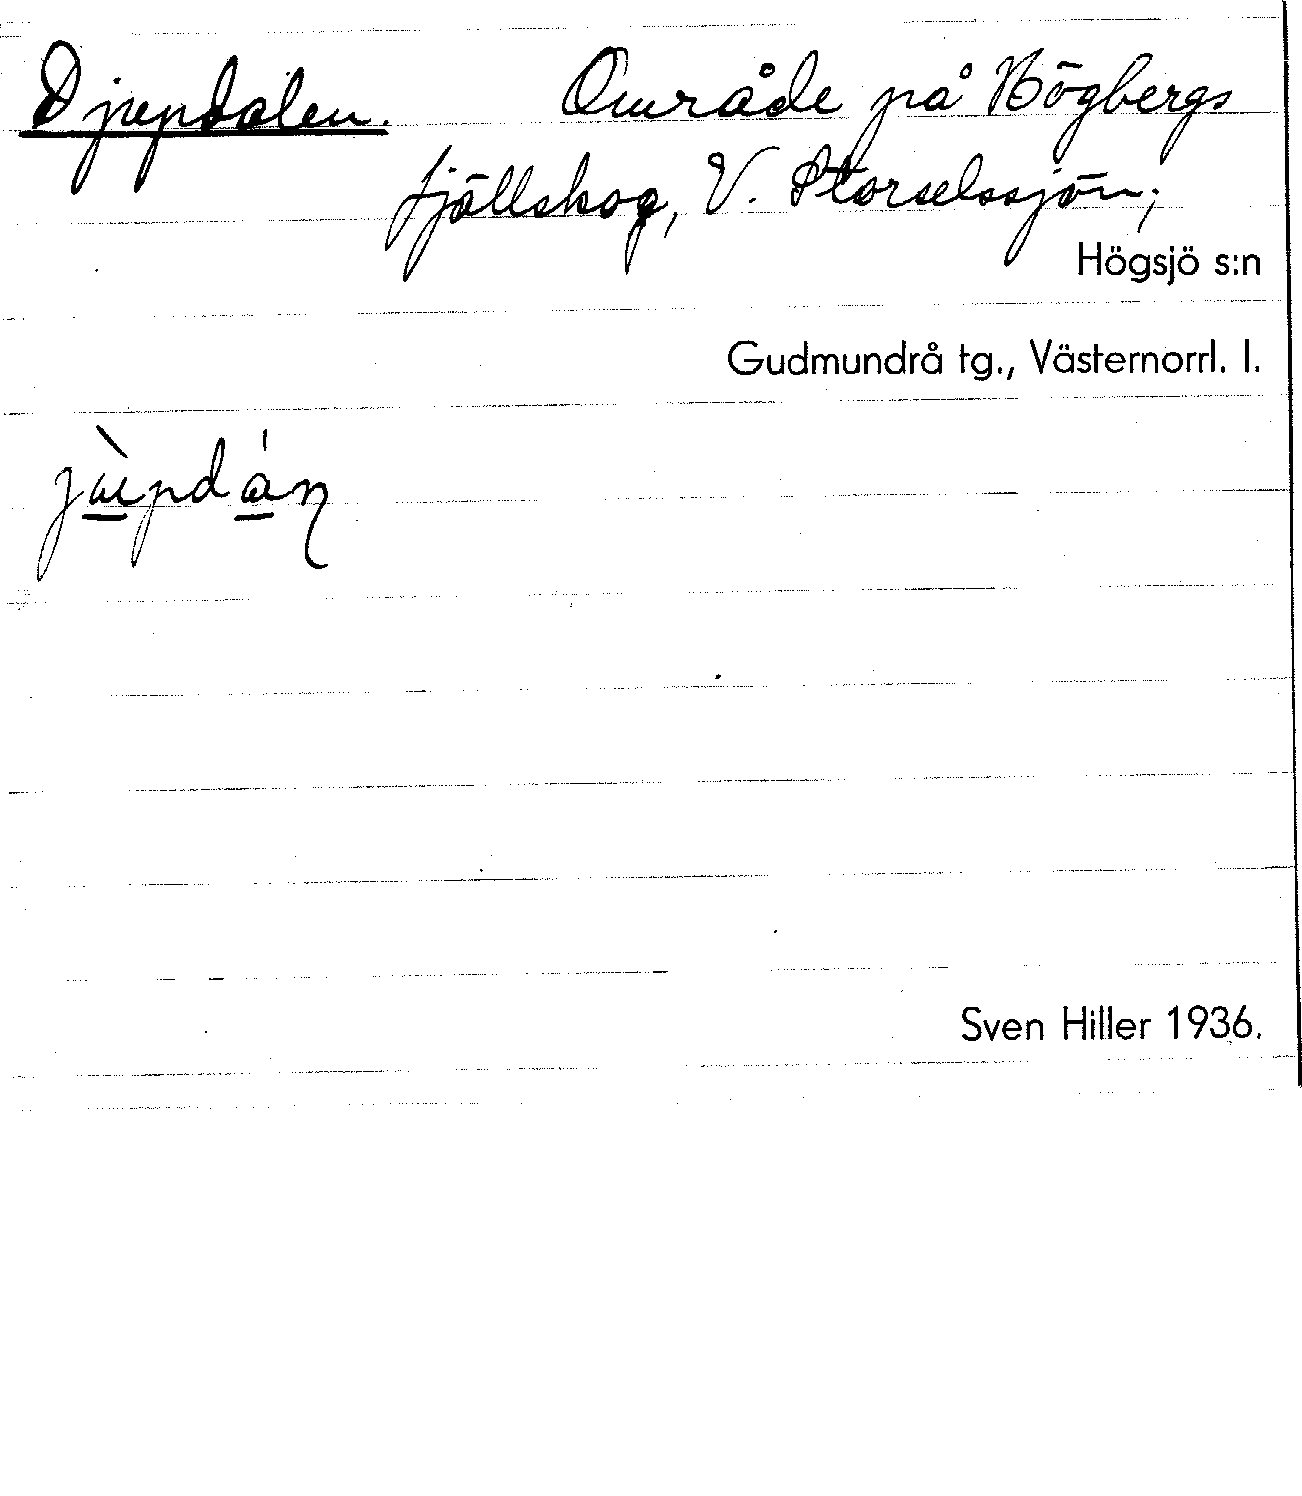 Djupdalen. Område på Högbergs
fjällskog, V. Storselssjön;
Högsjö s:n
Gudmundrå tg., Västernorrl. l.
Sven Hiller 1936.